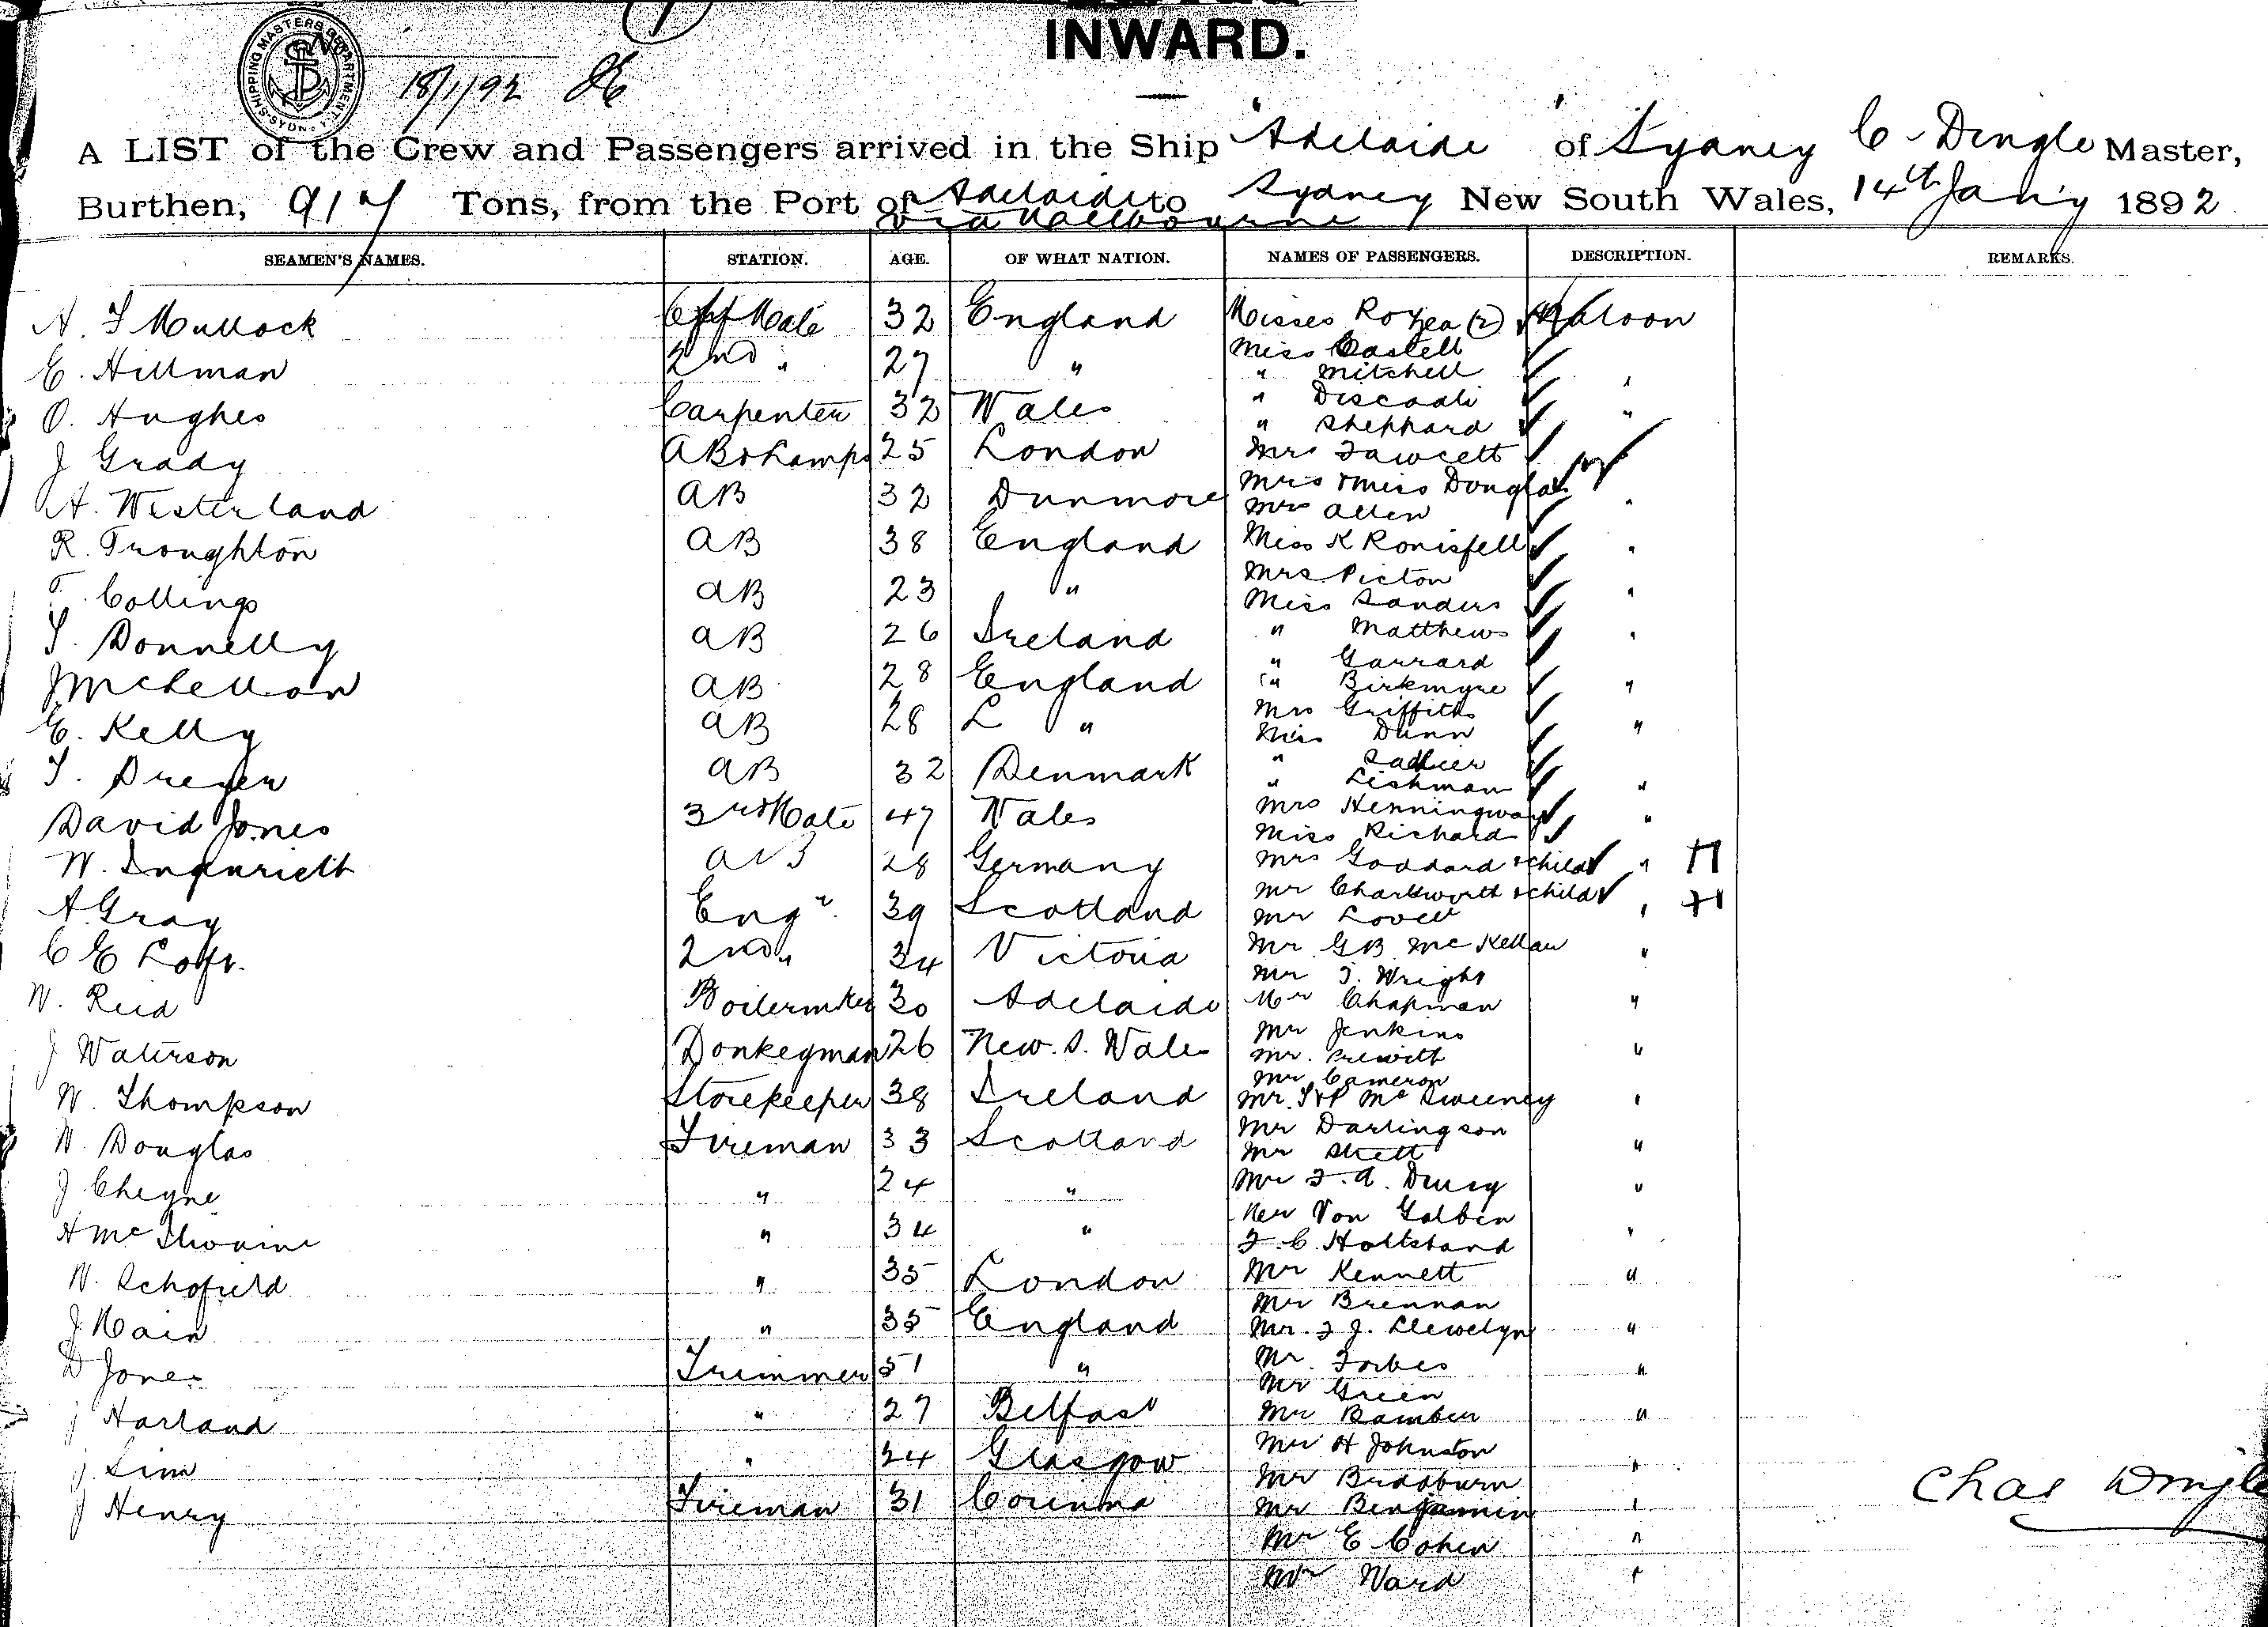 INWARD.
SHIPPING MASTERS DEPARTMENT SYDNEY
18/1/92
A LIST of the Crew and Passengers arrived in the Ship "Adelaide" of Sydney C Dingle Master,
Burthen, 917 Tons, from the Port of Adelaide to Sydney New South Wales, 14th Jany 1892
via Melbourne
SEAMEN'S NAMES. STATION. AGE. OF WHAT NATION. NAMES OF PASSENGERS. DESCRIPTION. REMARKS.
A. T Mullock Chf Mate 32 England Misses (2) Saloon
Miss Castell
E. Hillman 2nd " 27 " " Mitchell
O. Hughes Carpenter 32 Wales "
" Sheppard "
J Grady AB & Lamps 25 London Mrs Fawcett
A. Westerland AB 32 Dunmore Mrs & Miss Douglas
Mrs Allen "
R. Troughton AB 38 England Miss K "
Mrs Picton
T. Collings AB 23 " Miss Sanders "
T. Donnelly AB 26 Ireland " Matthews "
" Garrard
J McLellan AB 28 England " Birkmyre "
Mrs Griffiths
E. Kelly AB 28 " Miss Dunn "
" Sadlier
T. Dreyer AB 32 Denmark " Lishman "
David Jones 3rd Mate 47 Wales Mrs Henningway "
Miss Richards
W. AB 28 Germany Mrs Goddard & child "
Mr Charlsworth & child
A. Gray Engr. 39 Scotland Mr Lovell "
C E 2nd " 34 Victoria Mr G B McKellar "
Mr T. Wright
W. Reid Boilermker 30 Adelaide Mr Chapman "
Mr Jenkins
J Waterson Donkeyman 26 New. S. Wales Mr. Prewitt "
Mr Cameron
W. Thompson Storekeeper 38 Ireland Mr. T & P McSweeney "
W. Douglas Fireman 33 Scotland Mr Darlingson
Mr Skett "
J Cheyne " 24 " Mr F. A. Drury "
Her Von Galben
A McIlwaine " 34 " F. C. Holtsband "
W. Schofield " 35 London Mr Kennett "
Mr Brennan
J Main " 35 England Mr. F J. Llewelyn "
D Jones Trimmer 51 " Mr. Forbes "
Mr Green
J Harland " 27 Belfast Mr Bamber "
J. Sim " 24 Glasgow Mr H Johnston
Mr Bradburn "
J Henry Fireman 31 Mr Benjamin "
Mr E Cohen "
Mr Ward "
Chas Dingle